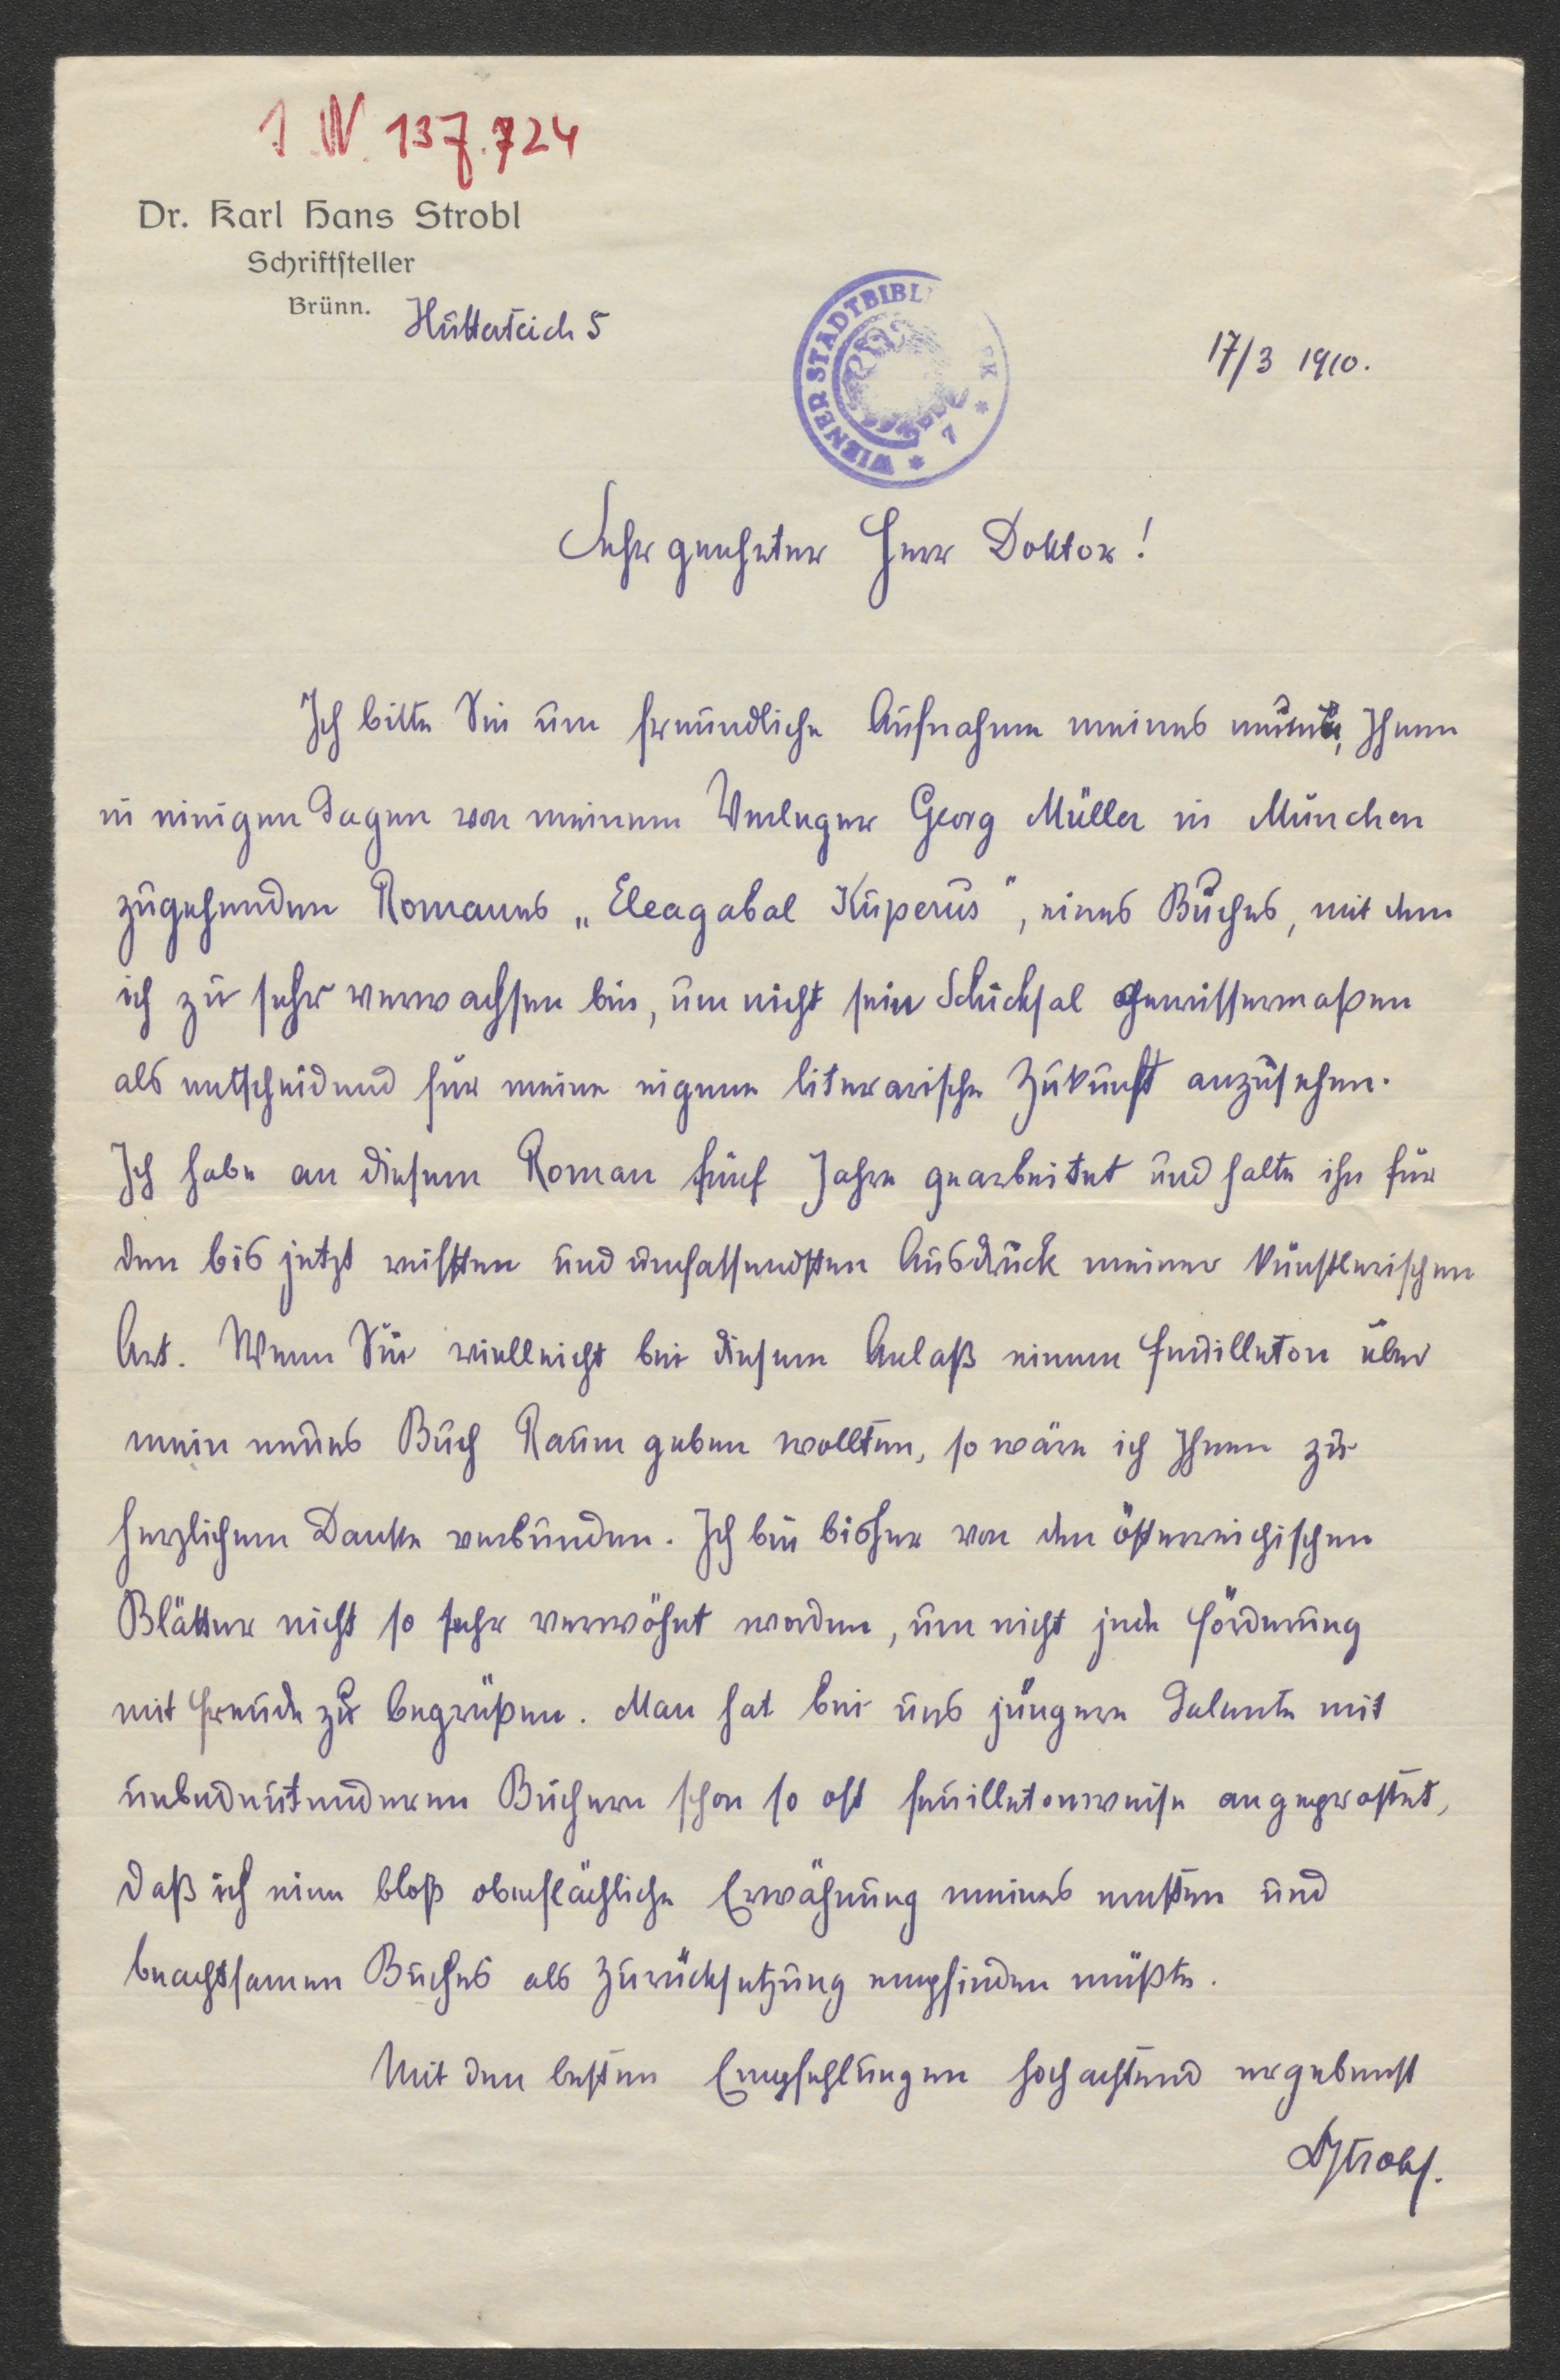 I. N. 137.724
Dr. Karl Hans Strobl
Schriftsteller
Brünn. Hutterteich 5
WIENER STADTBIBL K * 7 *
17/3 1910.
Sehr geehrter Herr Doktor!
Ich bitte Sie um freundliche Aufnahme meines neuen, Ihnen
in einigen Tagen von meinem Verleger Georg Müller in München
zugehenden Romanes „Eleagabal Kuperus", eines Buches, mit dem
ich zu sehr verwachsen bin, um nicht sein Schicksal gewissermaßen
als entscheidend für meine eigene literarische Zukunft anzusehen.
Ich habe an diesem Roman fünf Jahre gearbeitet und halte ihn für
den bis jetzt reifsten und umfassendsten Ausdruck meiner künstlerischen
Art. Wenn Sie vielleicht bei diesem Anlaß einem Feuilleton über
mein neues Buch Raum geben wollten, so wäre ich Ihnen zu
herzlichem Danke verbunden. Ich bin bisher von den österreichischen
Blätter nicht so sehr verwöhnt worden, um nicht jede Förderung
mit Freude zu begrüßen. Man hat bei uns jüngere Talente mit
unbedeutenderen Büchern schon so oft feuilletonweise angeprostet,
daß ich eine bloß oberflächliche Erwähnung meines ernsten und
beachtsamen Buches als Zurücksetzung empfinden müßte.
Mit den besten Empfehlungen hochachtend ergebenst
DrStrobl.